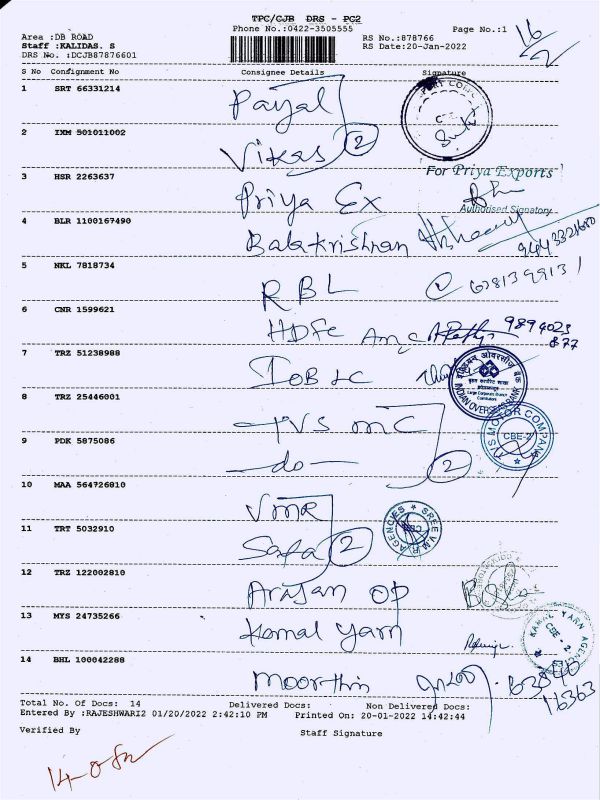 TPC/CJB DRS - PC2
Phone No.:0422-3505555 Page No.:1
Area :DB ROAD RS No.:878766
Staff :KALIDAS. S RS Date:20-Jan-2022
DRS No. :DCJB87876601
16/2
S No Consignment No Consignee Details Signature
1 SRT 66331214 Payal
2 IXM 501011002 Vikas 2
For Priya Exports
3 HSR 2263637 Priya Ex
Authorised Signatory
4 BLR 1100167490 Balakrishnan
5 NKL 7818734 RBL
6 CNR 1599621 HDFC Amc 9894023
877
7 TRZ 51238988 IOB LC
INDIAN OVERSEAS BANK
8 TRZ 25446001 TVS MC
TVS MOTOR COMPANY
CBE-2
9 PDK 5875086 -do- 2
10 MAA 564726810 VMR
SREE V.M.R AGENCIES
11 TRT 5032910 Safa 2
12 TRZ 122002810 Arasan op
13 MYS 24735266 Kamal yarn
KAMAL YARN AGENC
CBE - 2
14 BHL 100042288 Moorthin 63540
16363
Total No. Of Docs: 14 Delivered Docs: Non Delivered Docs:
Entered By :RAJESHWARI2 01/20/2022 2:42:10 PM Printed On: 20-01-2022 14:42:44
Verified By Staff Signature